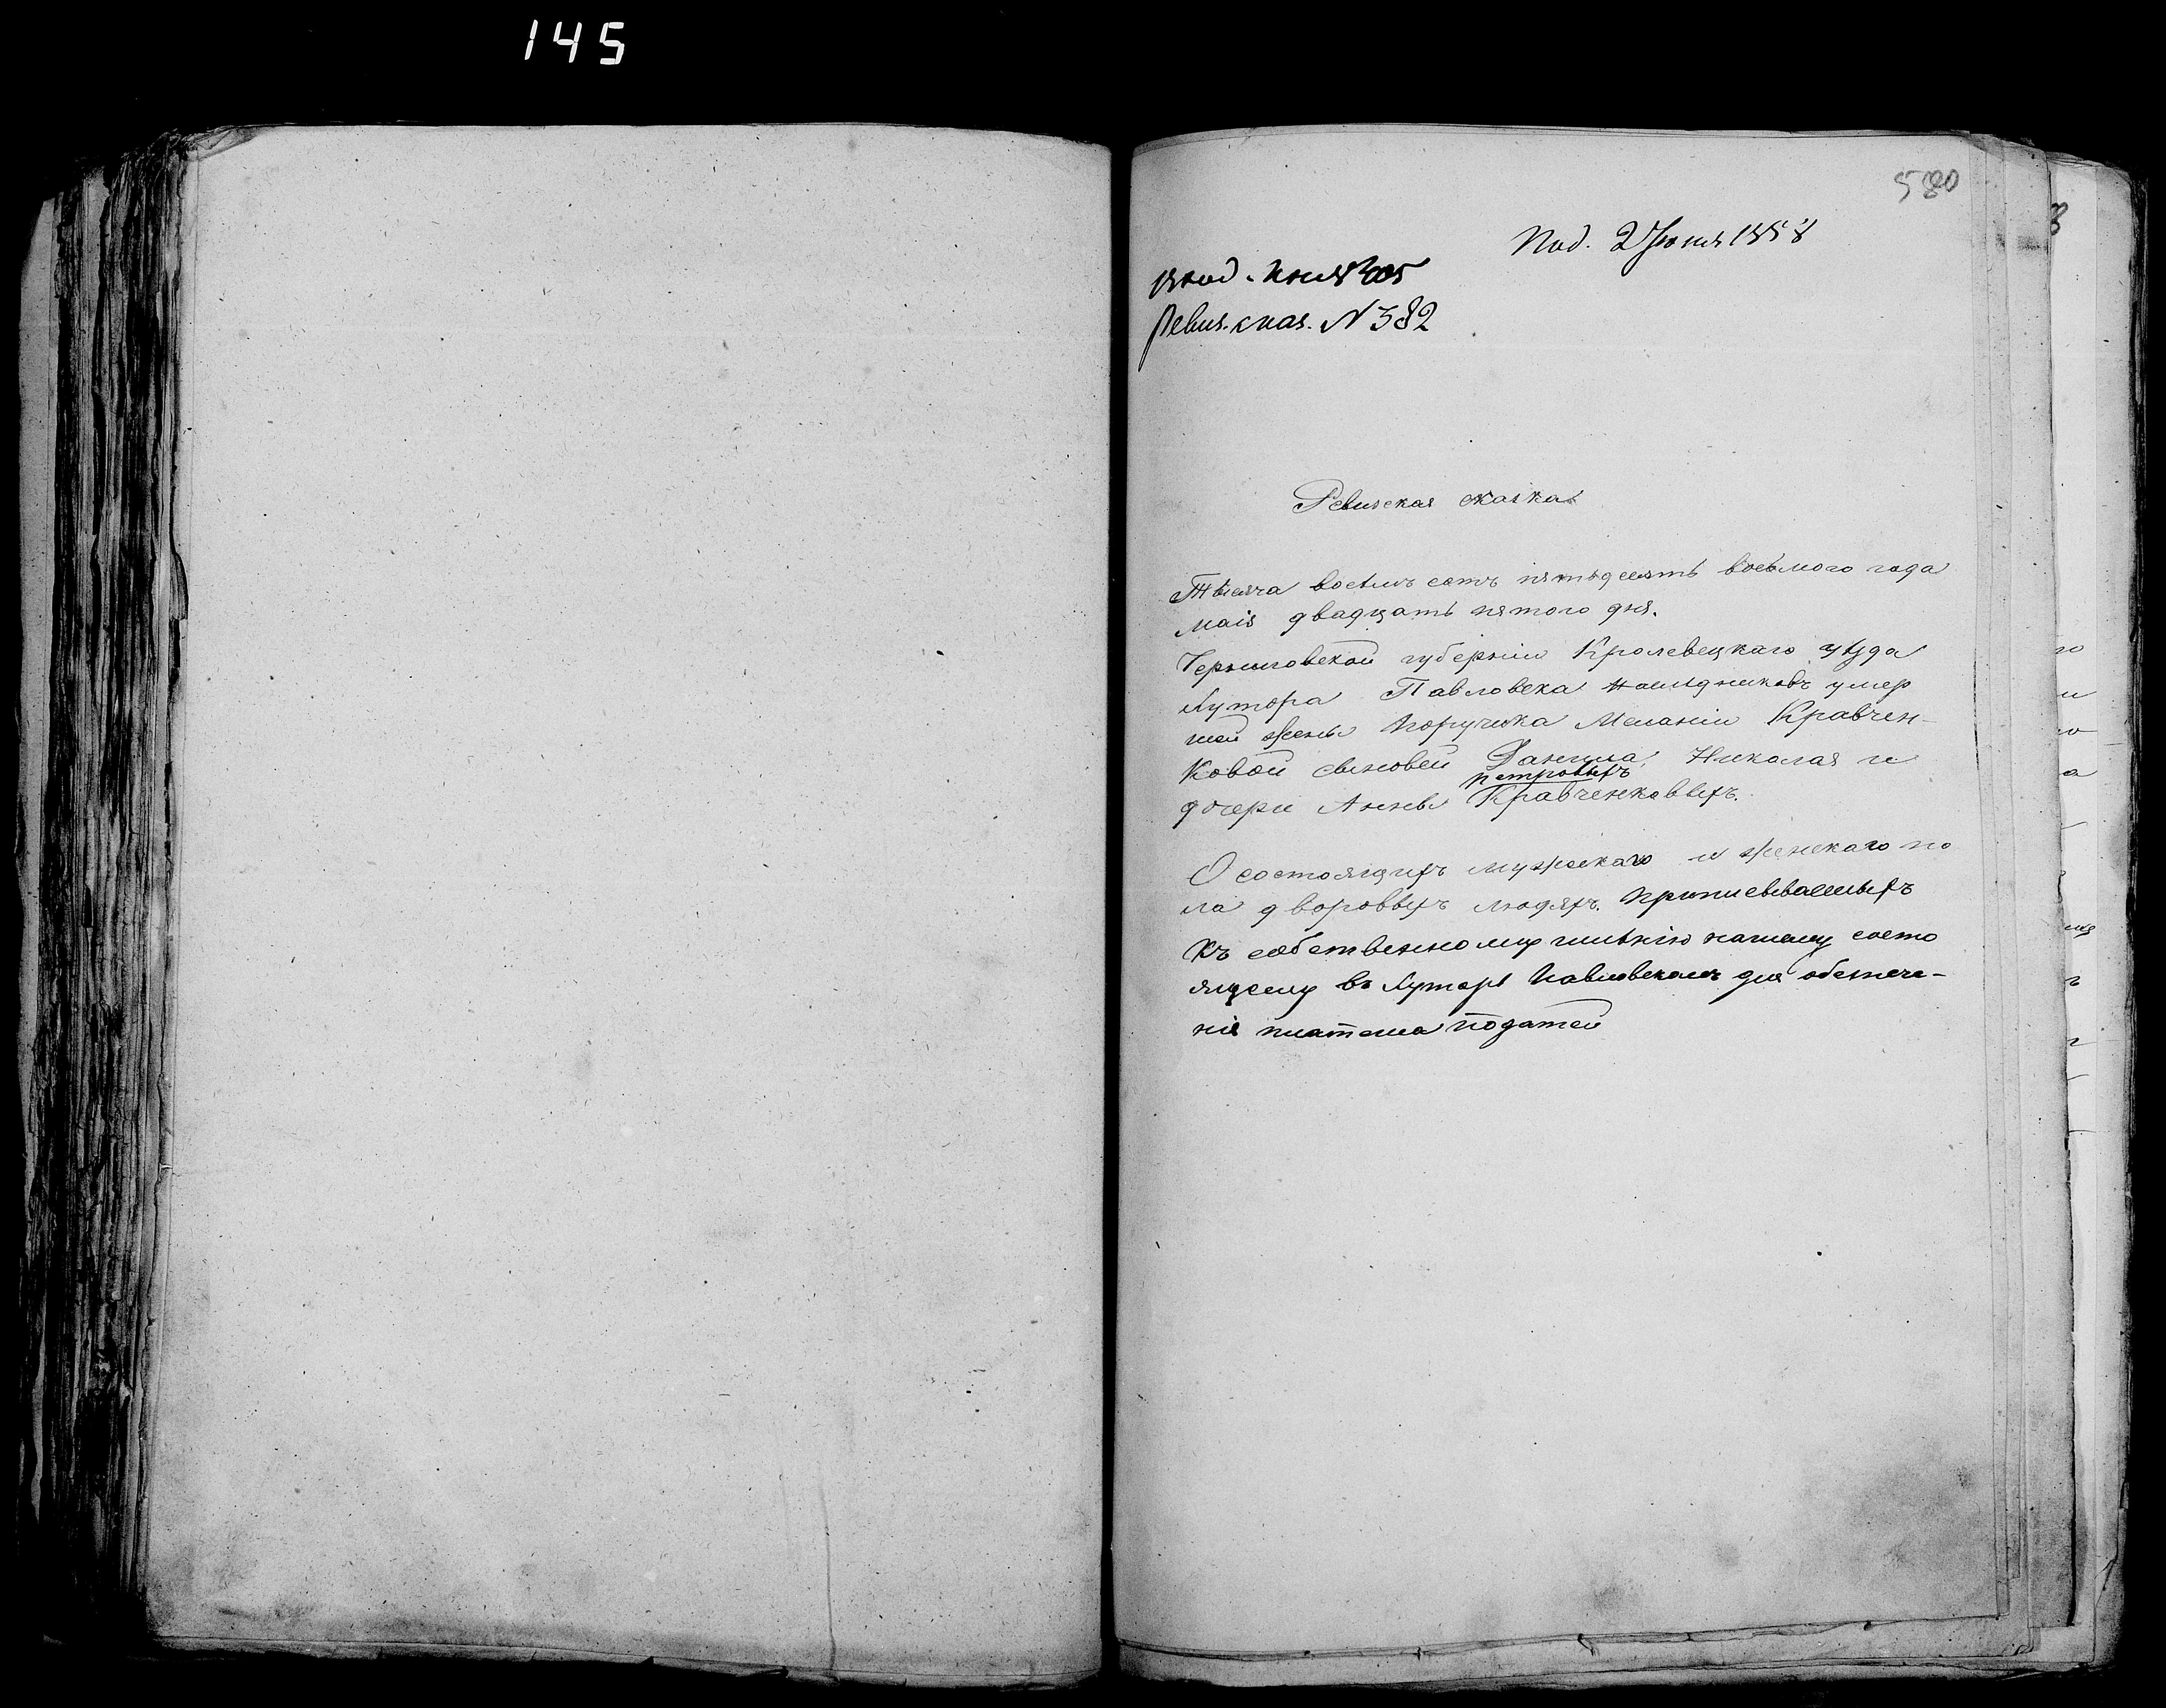 145
580
Под. 2 Іюня 1858
Ревиз. сказ. N 382
Ревизская сказка
Тысяча восемъ сотъ пятьдесятъ восьмого года
маія двадцать пятого дня.
Черниговской губерніи Кролевецкаго уѣзда
Хутора Павловска наслѣдниковъ умер
шей жены Поручика Меланіи Кравчен-
ковой сыновей Данила, Николая и
петровыхъ
дочери Анны Кравченковыхъ.
О состоящихъ мужескаго и женскаго по
ла дворовыхъ людяхъ. приписываемыхъ
Къ собственному имѣнію нашему состо
ящему въ Хуторѣ Павловскомъ для обезпече-
нія платежа податей